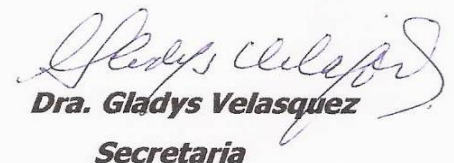 Gladys Velasquez
Dra. Gladys Velasquez
Secretaria